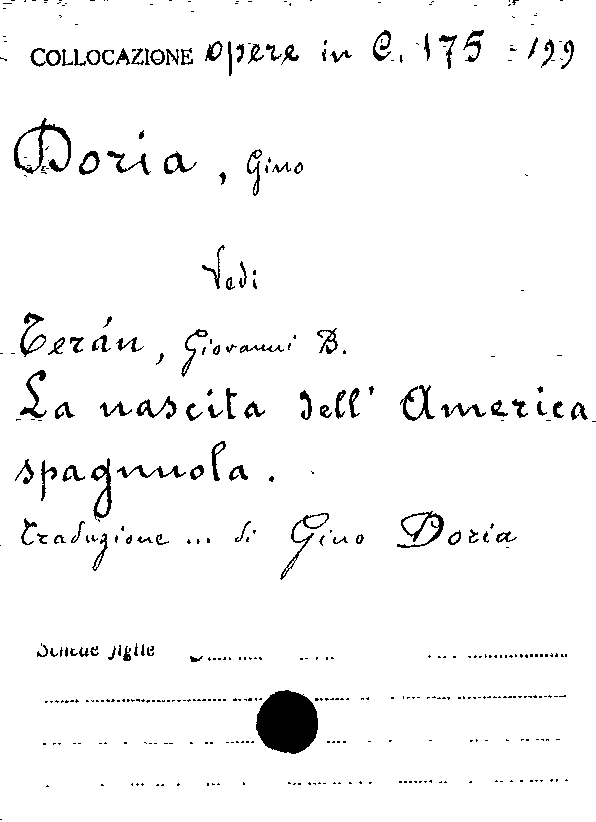 COLLOCAZIONE opere in C. 175 - 199
Doria, Gino
Vedi
Terán, Giovanni B.
La nascita dell' America
spagnuola.
Traduzione ... di Gino Doria
Schede figlie